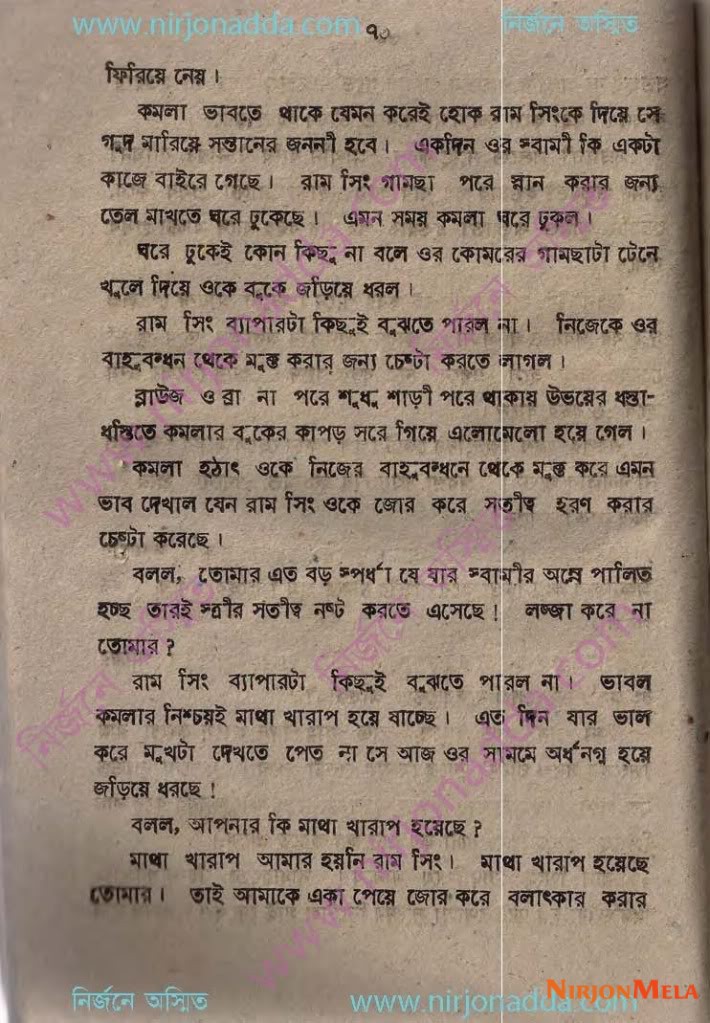 www.nirjonadda.com
৭০
নির্জনে অস্মিত
ফিরিয়ে নেয়।
কমলা ভাবতে থাকে যেমন করেই হোক রাম সিংকে দিয়ে সে
গুদ মারিয়ে সন্তানের জননী হবে। একদিন ওর স্বামী কি একটা
কাজে বাইরে গেছে। রাম সিং গামছা পরে স্নান করার জন্য
তেল মাখতে ঘরে ঢুকেছে। এমন সময় কমলা ঘরে ঢুকল।
ঘরে ঢুকেই কোন কিছু না বলে ওর কোমরের গামছাটা টেনে
খুলে দিয়ে ওকে বুকে জড়িয়ে ধরল।
রাম সিং ব্যাপারটা কিছুই বুঝতে পারল না। নিজেকে ওর
বাহুবন্ধন থেকে মুক্ত করার জন্য চেষ্টা করতে লাগল।
ব্লাউজ ও ব্রা না পরে শুধু শাড়ী পরে থাকায় উভয়ের ধস্তা-
ধস্তিতে কমলার বুকের কাপড় সরে গিয়ে এলোমেলো হয়ে গেল।
কমলা হঠাৎ ওকে নিজের বাহুবন্ধনে থেকে মুক্ত করে এমন
ভাব দেখাল যেন রাম সিং ওকে জোর করে সতীত্ব হরণ করার
চেষ্টা করেছে।
বলল, তোমার এত বড় স্পর্ধা যে যার স্বামীর অন্নে পালিত
হচ্ছ তারই স্ত্রীর সতীত্ব নষ্ট করতে এসেছে! লজ্জা করে না
তোমার?
রাম সিং ব্যাপারটা কিছুই বুঝতে পারল না। ভাবল
কমলার নিশ্চয়ই মাথা খারাপ হয়ে যাচ্ছে। এত দিন যার ভাল
করে মুখটা দেখতে পেত না সে আজ ওর সামমে অর্ধনগ্ন হয়ে
জড়িয়ে ধরছে!
বলল, আপনার কি মাথা খারাপ হয়েছে?
মাথা খারাপ আমার হয়নি রাম সিং। মাথা খারাপ হয়েছে
তোমার। তাই আমাকে একা পেয়ে জোর করে বলাৎকার করার
নির্জনে অস্মিত
www.nirjonadda.com
NIRJONMELA